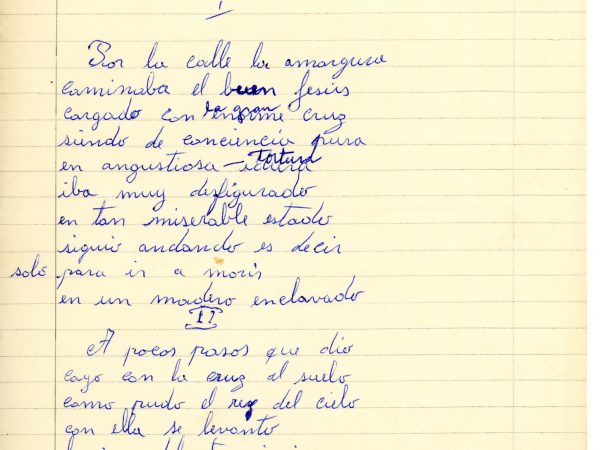 I
Por la calle la amargura
caminaba el buen Jesús
cargado con la gran enorme cruz
siendo de conciencia pura
en angustiosa tortura
iba muy desfigurado
en tan miserable estado
siguio andando es decir
solo para ir a morir
en un madero enclavado
II
A pocos pasos que dio
cayo con la cruz al suelo
como pudo el rey del cielo
con ella se levanto